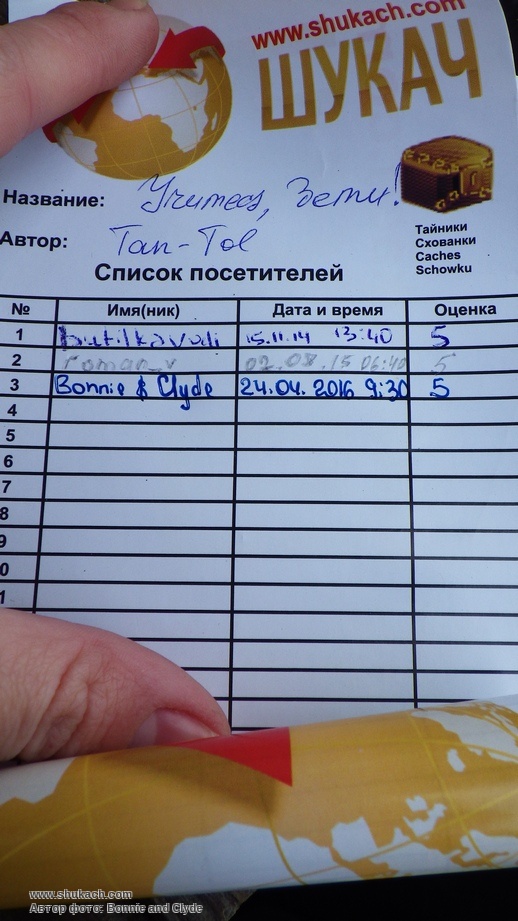 www.shukach.com
ШУКАЧ
Название: Учитесь, Дети!
Автор: Tan-Tol
Тайники
Схованки
Caches
Schowku
Список посетителей
№ Имя(ник) Дата и время Оценка
1 butilkavodi 15.11.14 13:40 5
2 roman_v 02.08.15 06:40 5
3 Bonnie & Clyde 24.04.2016 9:30 5
4
5
6
7
8
9
0
1
www.shukach.com
Автор фото: Bonnie and Clyde